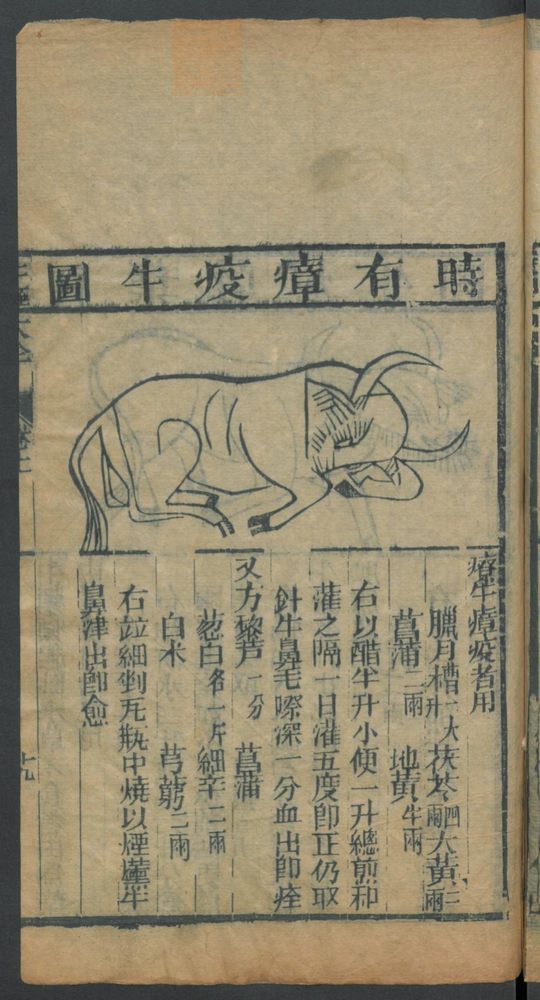 時有瘴疫牛圖
療牛瘴疫者用
臘月糟一大升 茯苓四兩 大黃二兩
菖蒲二兩 地黃半兩
右以醋半升小便一升總煎和
灌之隔一日灌五度卽正仍取
針牛鼻毛際深一分血出卽痊
又方藜芦一分 菖蒲
葱白各一斤 細辛二兩
白术 芎藭二兩
右竝細剉瓦瓶中燒以煙薰牛
鼻津出卽愈
十九